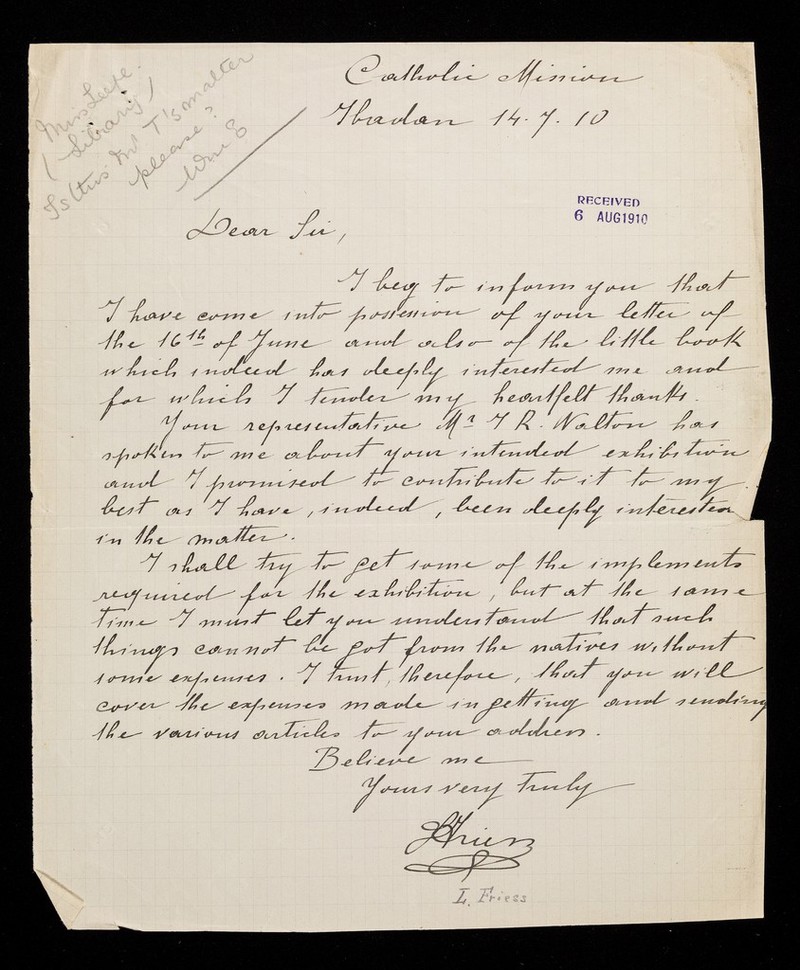 Miss Leese.
(Library)
Is this Mr T's matter
please?
Catholic Mission
Ibadan 14.7.10
RECEIVED
6 AUG 1910
Dear Sir,
I beg to inform you that
I have come into possession of your letter of
the 16th of June and also of the little book
which indeed has deeply interested me and
for which I tender my heartfelt thanks.
Your representative Mr T R. Walton has
spoken to me about your intended exhibition
and I promised to contribute to it to my
best as I have, indeed, been deeply interested
in the matter.
I shall try to get some of the implements
required for the exhibition, but at the same
time I must let you understand that such
things cannot be got from the natives without
some expenses. I trust, therefore, that you will
cover the expenses made in getting and sending
the various articles to your address.
Believe me
Yours very truly
LFriess
L. Friess